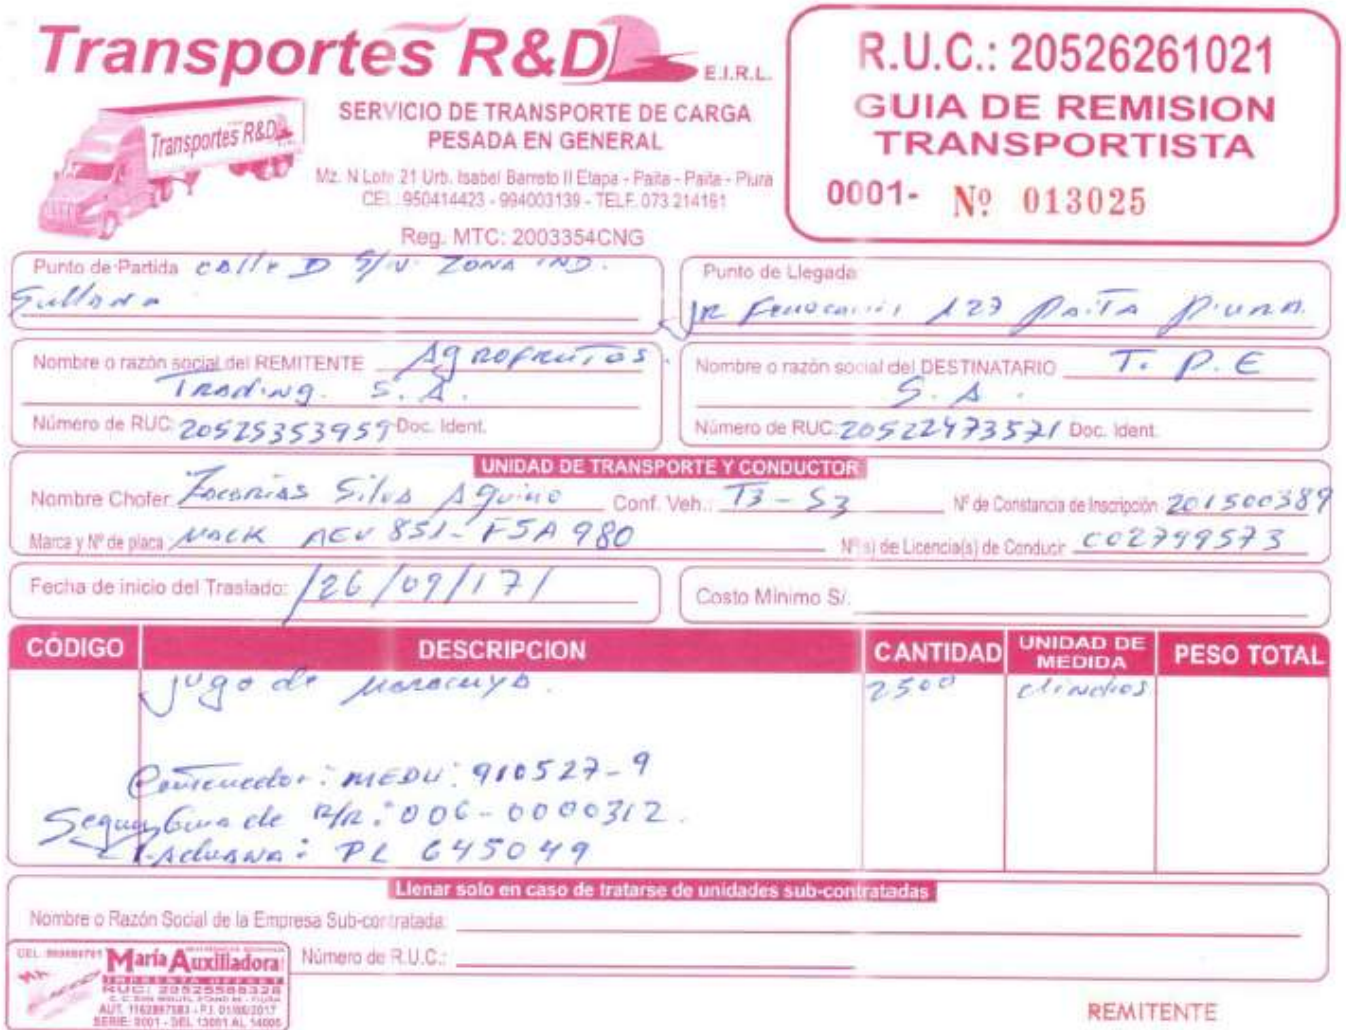 Transportes R&D E.I.R.L.
Transportes R&D
SERVICIO DE TRANSPORTE DE CARGA
PESADA EN GENERAL
Mz. N Lote 21 Urb. Isabel Barreto II Etapa - Paita - Paita - Piura
CEL.: 950414423 - 994003139 - TELF. 073 214161
Reg. MTC: 2003354CNG
R.U.C.: 20526261021
GUIA DE REMISION
TRANSPORTISTA
0001- Nº 013025
Punto de Partida calle D S/N. ZONA IND.
Sullana
Punto de Llegada
JR Ferrocarril 127 PAITA PIURA.
Nombre o razón social del REMITENTE Agrofrutos
Trading. S.A.
Número de RUC: 20525353959 Doc. Ident.
Nombre o razón social del DESTINATARIO T. P. E
S. A.
Número de RUC: 20522473571 Doc. Ident.
UNIDAD DE TRANSPORTE Y CONDUCTOR
Nombre Chofer: Zacarias Silva Aquino Conf. Veh.: T3 - S3 Nº de Constancia de Inscripción 201500389
Marca y Nº de placa: MACK AEV 851 - F5A 980 Nº(s) de Licencia(s) de Conducir C02799573
Fecha de inicio del Traslado: /26/09/17/
Costo Mínimo S/.
CÓDIGO DESCRIPCION CANTIDAD UNIDAD DE MEDIDA PESO TOTAL
jugo de maracuya. 2500
Contenedor: MEDU: 910527-9
Segun Guia de R/R: 006-0000312.
Aduana: PL 645049
Llenar solo en caso de tratarse de unidades sub-contratadas
Nombre o Razón Social de la Empresa Sub-contratada:
Número de R.U.C.:
CEL.
María Auxiliadora
IMPRENTA OFFSET
RUC: 20525588328
AUT. 1162897583 - F.I. 01/08/2017
SERIE: 0001 - DEL 13001 AL 14000
REMITENTE